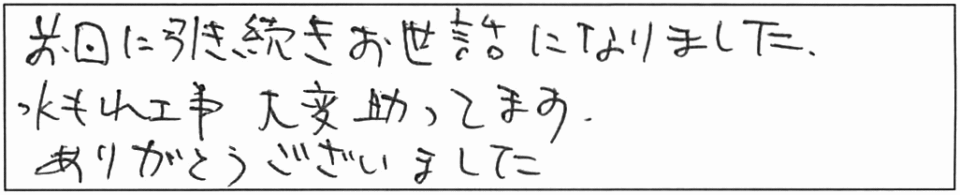 前回に引き続きお世話になりました.
水もれ工事 大変助ってます.
ありがとうございました